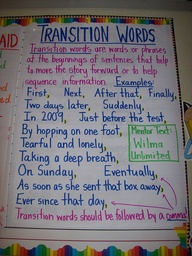 TRANSITION WORDS
Transition words are words or phrases
at the beginnings of sentences that help
to move the story forward or to help
sequence information. Examples:
First, Next, After that, Finally,
Two days later, Suddenly,
In 2009, Just before the test,
By hopping on one foot,
Tearful and lonely,
Taking a deep breath,
Mentor Text:
Wilma
Unlimited
On Sunday, Eventually,
As soon as she sent that box away,
Ever since that day,
Transition words should be followed by a comma
AID